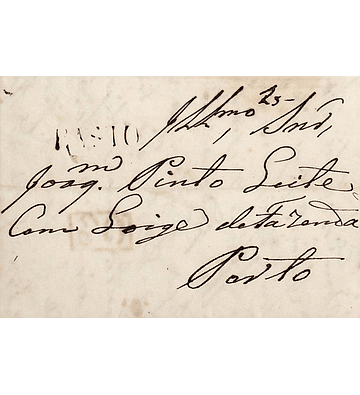 BASTO
Illmo, Snr,
Joaqm. Pinto Leite
Com Loige de Fazenda
Porto